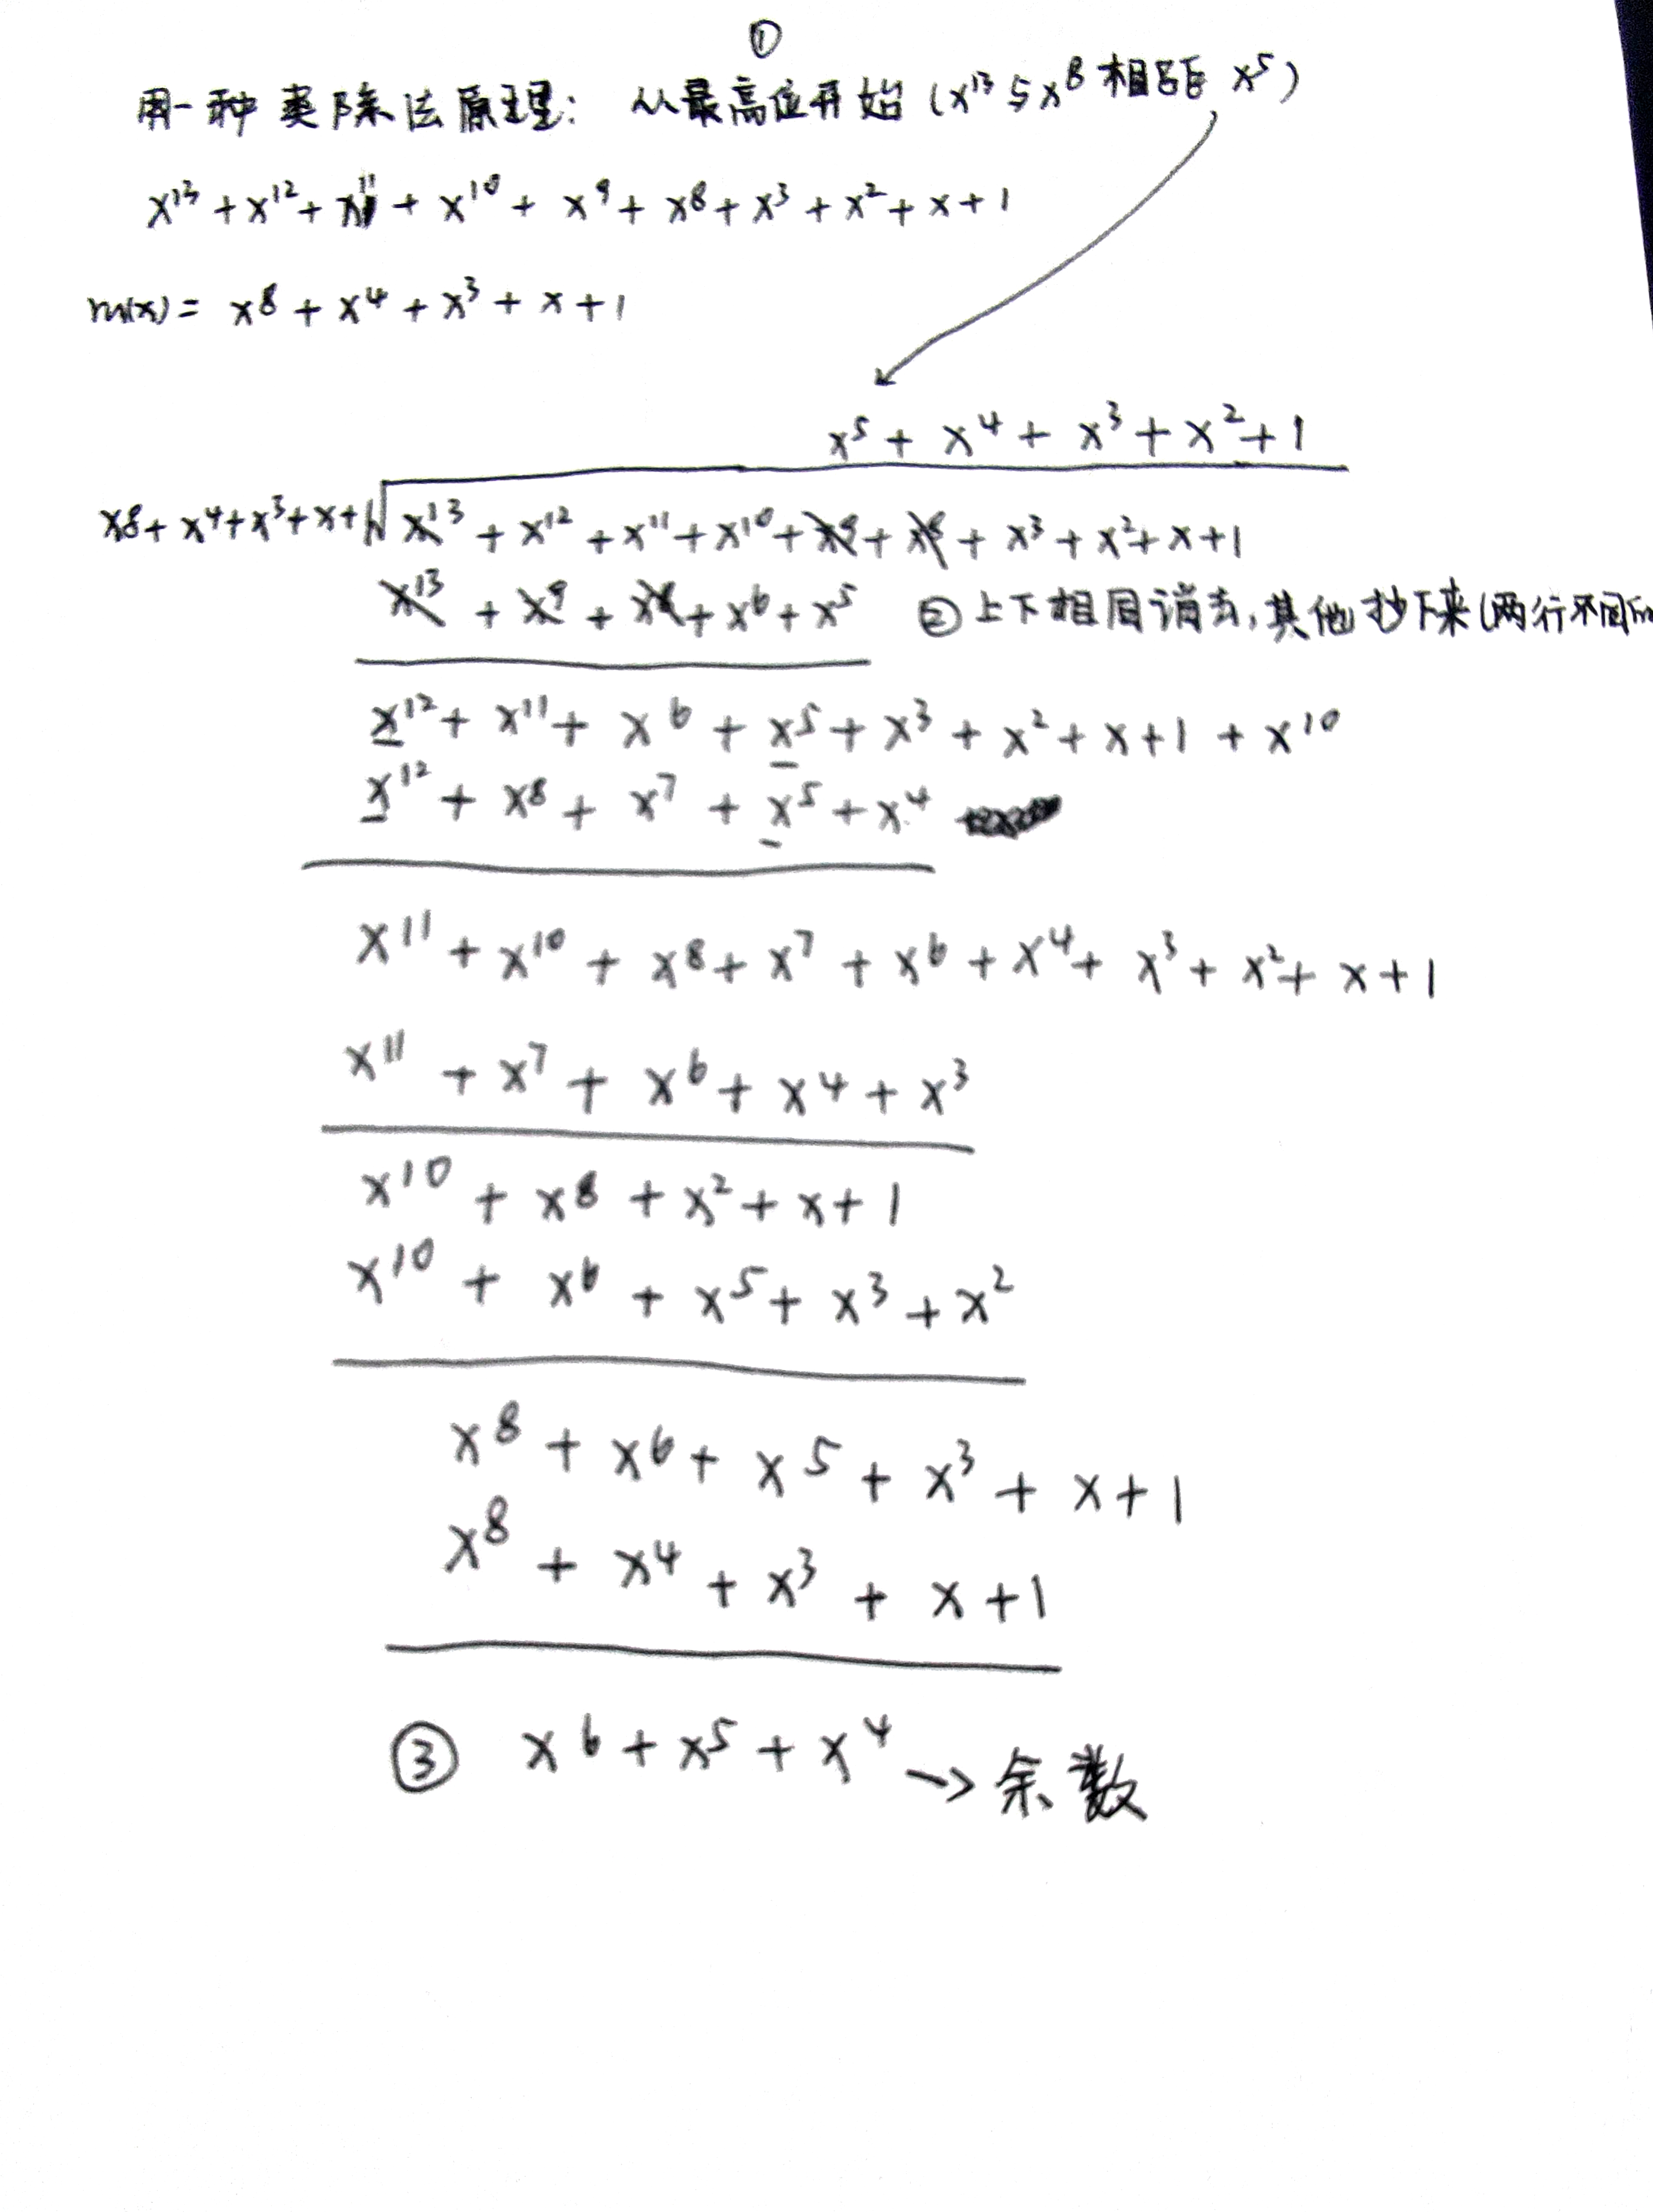 ①
用一种类除法原理: 从最高位开始 (x¹³与x⁸相距 x⁵)
x¹³ + x¹² + x¹¹ + x¹⁰ + x⁹ + x⁸ + x³ + x² + x + 1
m(x) = x⁸ + x⁴ + x³ + x + 1
x⁵ + x⁴ + x³ + x² + 1
x⁸ + x⁴ + x³ + x + 1 √ x¹³ + x¹² + x¹¹ + x¹⁰ + x⁹ + x⁸ + x³ + x² + x + 1
x¹³ + x⁹ + x⁸ + x⁶ + x⁵ ②上下相同消去, 其他抄下来(两行不同的
x¹² + x¹¹ + x⁶ + x⁵ + x³ + x² + x + 1 + x¹⁰
x¹² + x⁸ + x⁷ + x⁵ + x⁴
x¹¹ + x¹⁰ + x⁸ + x⁷ + x⁶ + x⁴ + x³ + x² + x + 1
x¹¹ + x⁷ + x⁶ + x⁴ + x³
x¹⁰ + x⁸ + x² + x + 1
x¹⁰ + x⁶ + x⁵ + x³ + x²
x⁸ + x⁶ + x⁵ + x³ + x + 1
x⁸ + x⁴ + x³ + x + 1
③ x⁶ + x⁵ + x⁴ → 余数